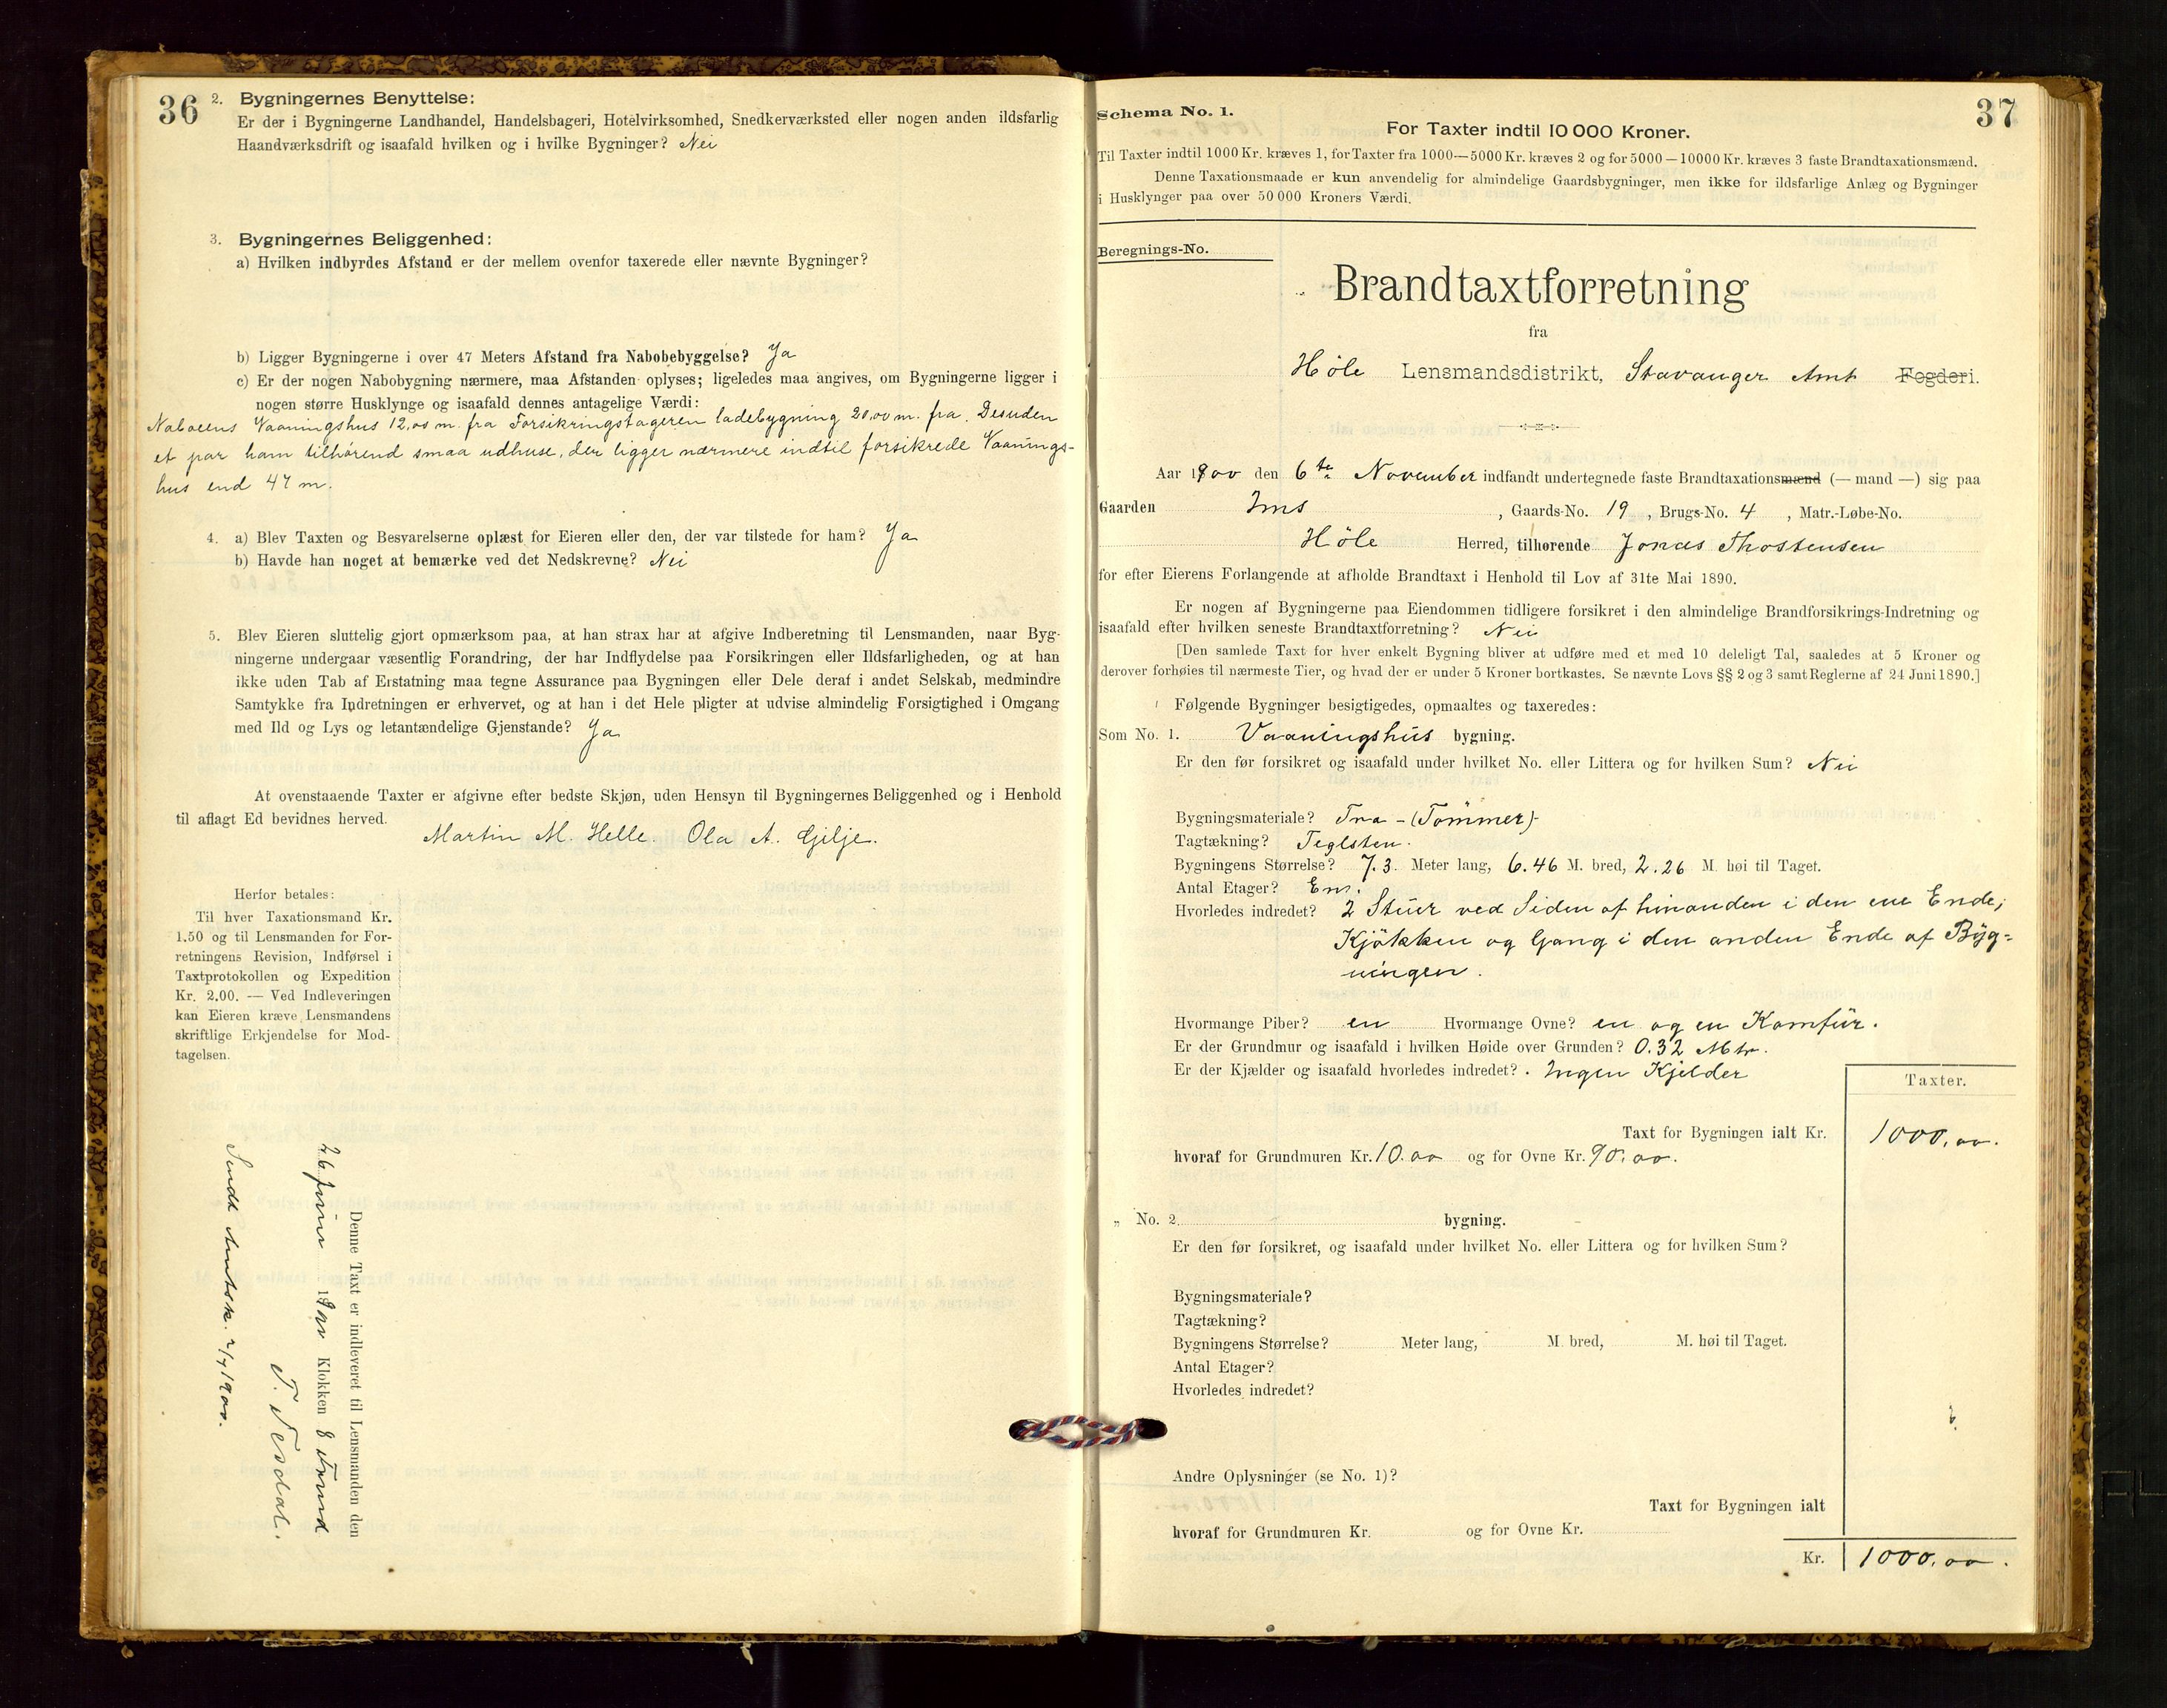 36
2. Bygningernes Benyttelse:
Er der i Bygningerne Landhandel, Handelsbageri, Hotelvirksomhed, Snedkerværksted eller nogen anden ildsfarlig
Haandværksdrift og isaafald hvilken og i hvilke Bygninger? Nei
3. Bygningernes Beliggenhed:
a) Hvilken indbyrdes Afstand er der mellem ovenfor taxerede eller nævnte Bygninger?
b) Ligger Bygningerne i over 47 Meters Afstand fra Nabobebyggelse? Ja
c) Er der nogen Nabobygning nærmere, maa Afstanden oplyses; ligeledes maa angives, om Bygningerne ligger i
nogen større Husklynge og isaafald dennes antagelige Værdi:
Naboens Vaaningshus 12,00 m. fra Forsikringstageren ladebygning 20,00 m. fra. Desuden
et par ham tilhørend smaa udhuse, der ligger nærmere indtil forsikrede Vaanings-
hus end 47 m.
4. a) Blev Taxten og Besvarelserne oplæst for Eieren eller den, der var tilstede for ham? Ja
b) Havde han noget at bemærke ved det Nedskrevne? Nei
5. Blev Eieren sluttelig gjort opmærksom paa, at han strax har at afgive Indberetning til Lensmanden, naar Byg-
ningerne undergaar væsentlig Forandring, der har Indflydelse paa Forsikringen eller Ildsfarligheden, og at han
ikke uden Tab af Erstatning maa tegne Assurance paa Bygningen eller Dele deraf i andet Selskab, medmindre
Samtykke fra Indretningen er erhvervet, og at han i det Hele pligter at udvise almindelig Forsigtighed i Omgang
med Ild og Lys og letantændelige Gjenstande? Ja
At ovenstaaende Taxter er afgivne efter bedste Skjøn, uden Hensyn til Bygningernes Beliggenhed og i Henhold
til aflagt Ed bevidnes herved.
Martin M. Helle. Ola A. Gilje.
Herfor betales:
Til hver Taxationsmand Kr.
1.50 og til Lensmanden for For-
retningens Revision, Indførsel i
Taxtprotokollen og Expedition
Kr. 2.00. — Ved Indleveringen
kan Eieren kræve Lensmandens
skriftlige Erkjendelse for Mod-
tagelsen.
Denne Taxt er indleveret til Lensmanden den
26 juni 1900 Klokken 8 Fmd
T. Tesdal.
Sendt Amtsk. 2/7 1900.
37
Schema No. 1.
For Taxter indtil 10 000 Kroner.
Til Taxter indtil 1000 Kr. kræves 1, for Taxter fra 1000—5000 Kr. kræves 2 og for 5000—10000 Kr. kræves 3 faste Brandtaxationsmænd.
Denne Taxationsmaade er kun anvendelig for almindelige Gaardsbygninger, men ikke for ildsfarlige Anlæg og Bygninger
i Husklynger paa over 50 000 Kroners Værdi.
Beregnings-No.
Brandtaxtforretning
fra
Høle Lensmandsdistrikt, Stavanger Amt Fogderi.
Aar 1900 den 6te November indfandt undertegnede faste Brandtaxationsmænd (— mand —) sig paa
Gaarden Ims, Gaards-No. 19, Brugs-No. 4, Matr.-Løbe-No.
Høle Herred, tilhørende Jonas Thostensen
for efter Eierens Forlangende at afholde Brandtaxt i Henhold til Lov af 31te Mai 1890.
Er nogen af Bygningerne paa Eiendommen tidligere forsikret i den almindelige Brandforsikrings-Indretning og
isaafald efter hvilken seneste Brandtaxtforretning? Nei
[Den samlede Taxt for hver enkelt Bygning bliver at udføre med et med 10 deleligt Tal, saaledes at 5 Kroner og
derover forhøies til nærmeste Tier, og hvad der er under 5 Kroner bortkastes. Se nævnte Lovs §§ 2 og 3 samt Reglerne af 24 Juni 1890.]
Følgende Bygninger besigtigedes, opmaaltes og taxeredes:
Som No. 1. Vaaningshus bygning.
Er den før forsikret og isaafald under hvilket No. eller Littera og for hvilken Sum? Nei
Bygningsmateriale? Træ - (Tømmer)-
Tagtækning? Teglsten.
Bygningens Størrelse? 7.3. Meter lang, 6.46 M. bred, 2.26 M. høi til Taget.
Antal Etager? En.
Hvorledes indredet? 2 Stuer ved Siden af hinanden i den ene Ende;
Kjøkken og Gang i den anden Ende af Byg-
ningen.
Hvormange Piber? en Hvormange Ovne? en og en Komfur.
Er der Grundmur og isaafald i hvilken Høide over Grunden? 0.32 Mtr.
Er der Kjælder og isaafald hvorledes indredet? Ingen Kjelder
Taxter.
Taxt for Bygningen ialt Kr. 1000,00.
hvoraf for Grundmuren Kr. 10.00 og for Ovne Kr. 90.00.
„ No. 2. bygning.
Er den før forsikret, og isaafald under hvilket No. eller Littera og for hvilken Sum?
Bygningsmateriale?
Tagtækning?
Bygningens Størrelse? Meter lang, M. bred, M. høi til Taget.
Antal Etager?
Hvorledes indredet?
Andre Oplysninger (se No. 1)?
Taxt for Bygningen ialt
hvoraf for Grundmuren Kr. og for Ovne Kr.
Kr. 1000,00.